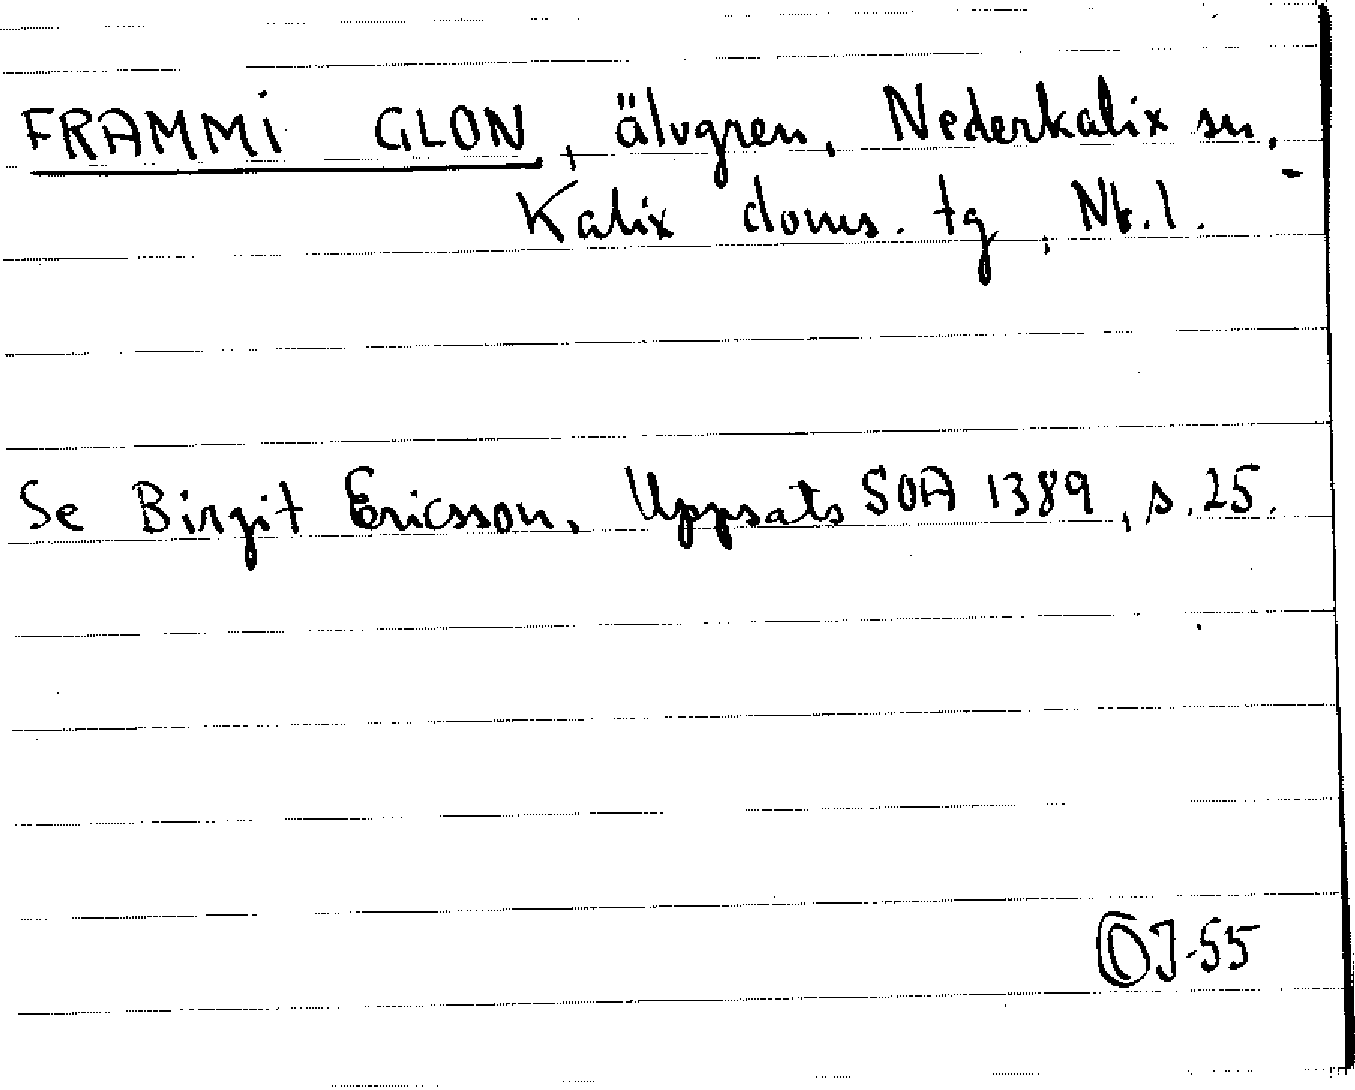 FRAMMI GLON, älvgren, Nederkalix sn,
Kalix doms. tg, Nb. l.
Se Birgit Ericsson, Uppsats SOA 1389, s. 25.
OJ-55